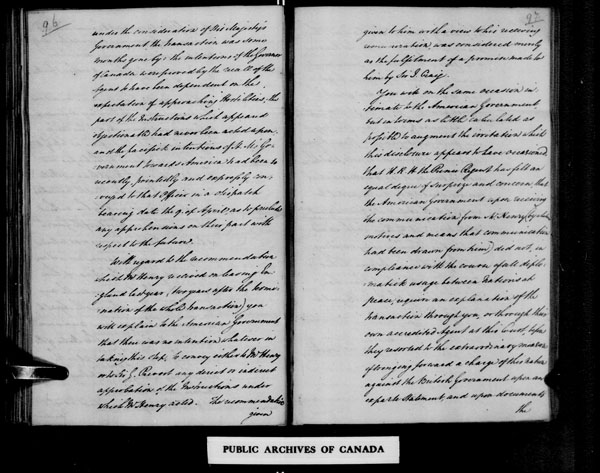 96
under the consideration of His Majesty's
Government the Transaction was some
months gone by; the intentions of the Governor
of Canada were proved by the recall of the
Agent to have been dependent on the
expectation of approaching Hostilities, the
part of the Instructions which appeared
objectionable had never been acted upon,
and the pacifick intentions of H. M's Go-
vernment towards America had been so
recently, pointedly and expressly con-
veyed to that Officer in a dispatch
bearing date the 9. of April, as to preclude
any apprehensions on their part with
respect to the future.
With regard to the recommendation
which Mr Henry received on leaving En-
gland last year, two years after the termi-
nation of the whole Transaction, you
will explain to the American Government
that there was no intention whatever in
taking this step, to convey either to Mr Henry
or to Sir G. Prevost any direct or indirect
approbation of the Instructions under
which Mr Henry acted. The recommendation
given
97
given to him with a view to his receiving
remuneration, was considered merely
as the fulfilment of a promise made to
him by Sir J. Craig.
You will on the same occasion in-
timate to the American Government,
but in terms as little calculated as
possible to augment the irritation which
this disclosure appears to have occasioned,
that H. R. H. the Prince Regent has felt an
equal degree of surprize and concern, that
the American Government upon receiving
the communication from Mr Henry (by whatever
motives and means that communication
had been drawn from him) did not, in
compliance with the course of all diplo-
matick usage between Nations at
peace, require an explanation of the
transaction through you, or through their
own accredited Agent at this Court, before
they resorted to the extraordinary measure
of bringing forward a charge of this nature
against the British Government upon an
exparte Statement, and upon documents
the
PUBLIC ARCHIVES OF CANADA